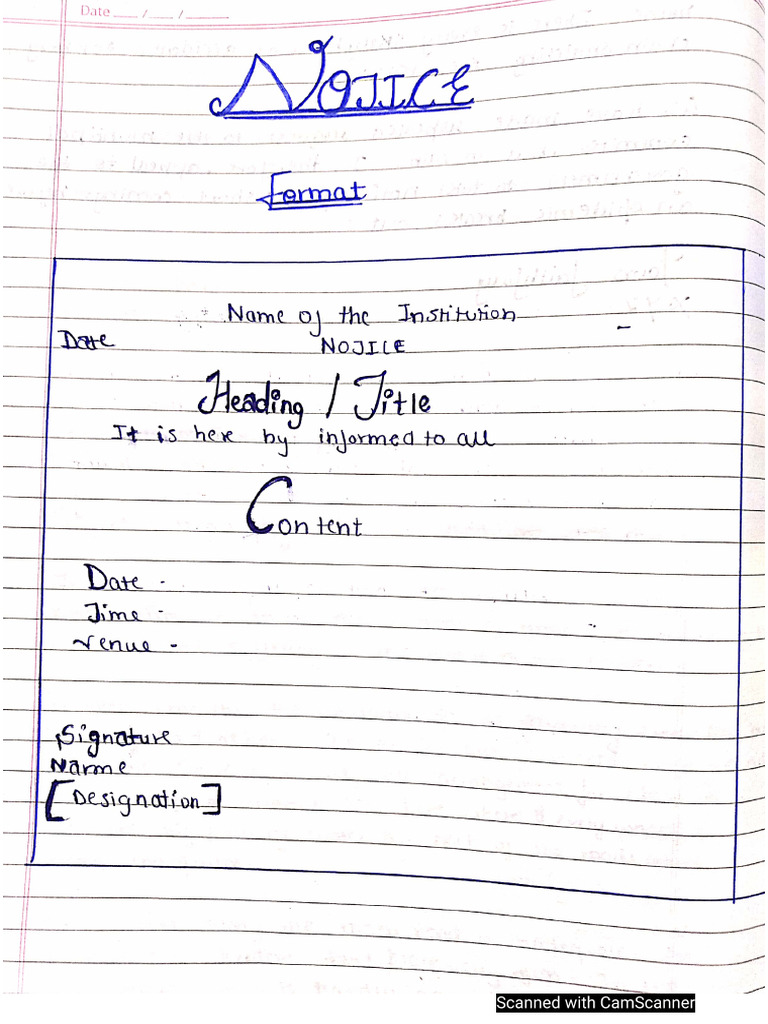 Date ___ / ___ / _____
NOTICE
Format
Name of the Institution
Date
NOTICE
Heading / Title
It is here by informed to all
Content
Date -
Time -
Venue -
Signature
Name
[Designation]
Scanned with CamScanner